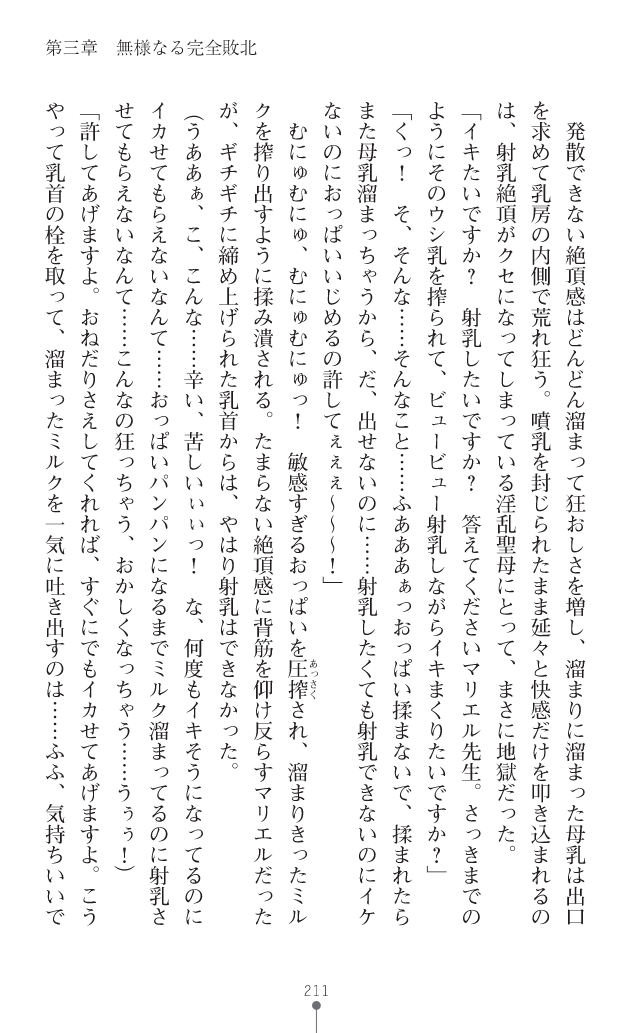 第三章　無様なる完全敗北
　発散できない絶頂感はどんどん溜まって狂おしさを増し、溜まりに溜まった母乳は出口
を求めて乳房の内側で荒れ狂う。噴乳を封じられたまま延々と快感だけを叩き込まれるの
は、射乳絶頂がクセになってしまっている淫乱聖母にとって、まさに地獄だった。
「イキたいですか？　射乳したいですか？　答えてくださいマリエル先生。さっきまでの
ようにそのウシ乳を搾られて、ビュービュー射乳しながらイキまくりたいですか？」
「くっ！　そ、そんな……そんなこと……ふあああぁっおっぱい揉まないで、揉まれたら
また母乳溜まっちゃうから、だ、出せないのに……射乳したくても射乳できないのにイケ
ないのにおっぱいいじめるの許してぇぇぇ～～～！」
　むにゅむにゅ、むにゅむにゅっ！　敏感すぎるおっぱいを圧搾され、溜まりきったミル
あっさく
クを搾り出すように揉み潰される。たまらない絶頂感に背筋を仰け反らすマリエルだった
が、ギチギチに締め上げられた乳首からは、やはり射乳はできなかった。
（うああぁ、こ、こんな……辛い、苦しいぃぃっ！　な、何度もイキそうになってるのに
イカせてもらえないなんて……おっぱいパンパンになるまでミルク溜まってるのに射乳さ
せてもらえないなんて……こんなの狂っちゃう、おかしくなっちゃう……うぅぅ！）
「許してあげますよ。おねだりさえしてくれれば、すぐにでもイカせてあげますよ。こう
やって乳首の栓を取って、溜まったミルクを一気に吐き出すのは……ふふ、気持ちいいで
211